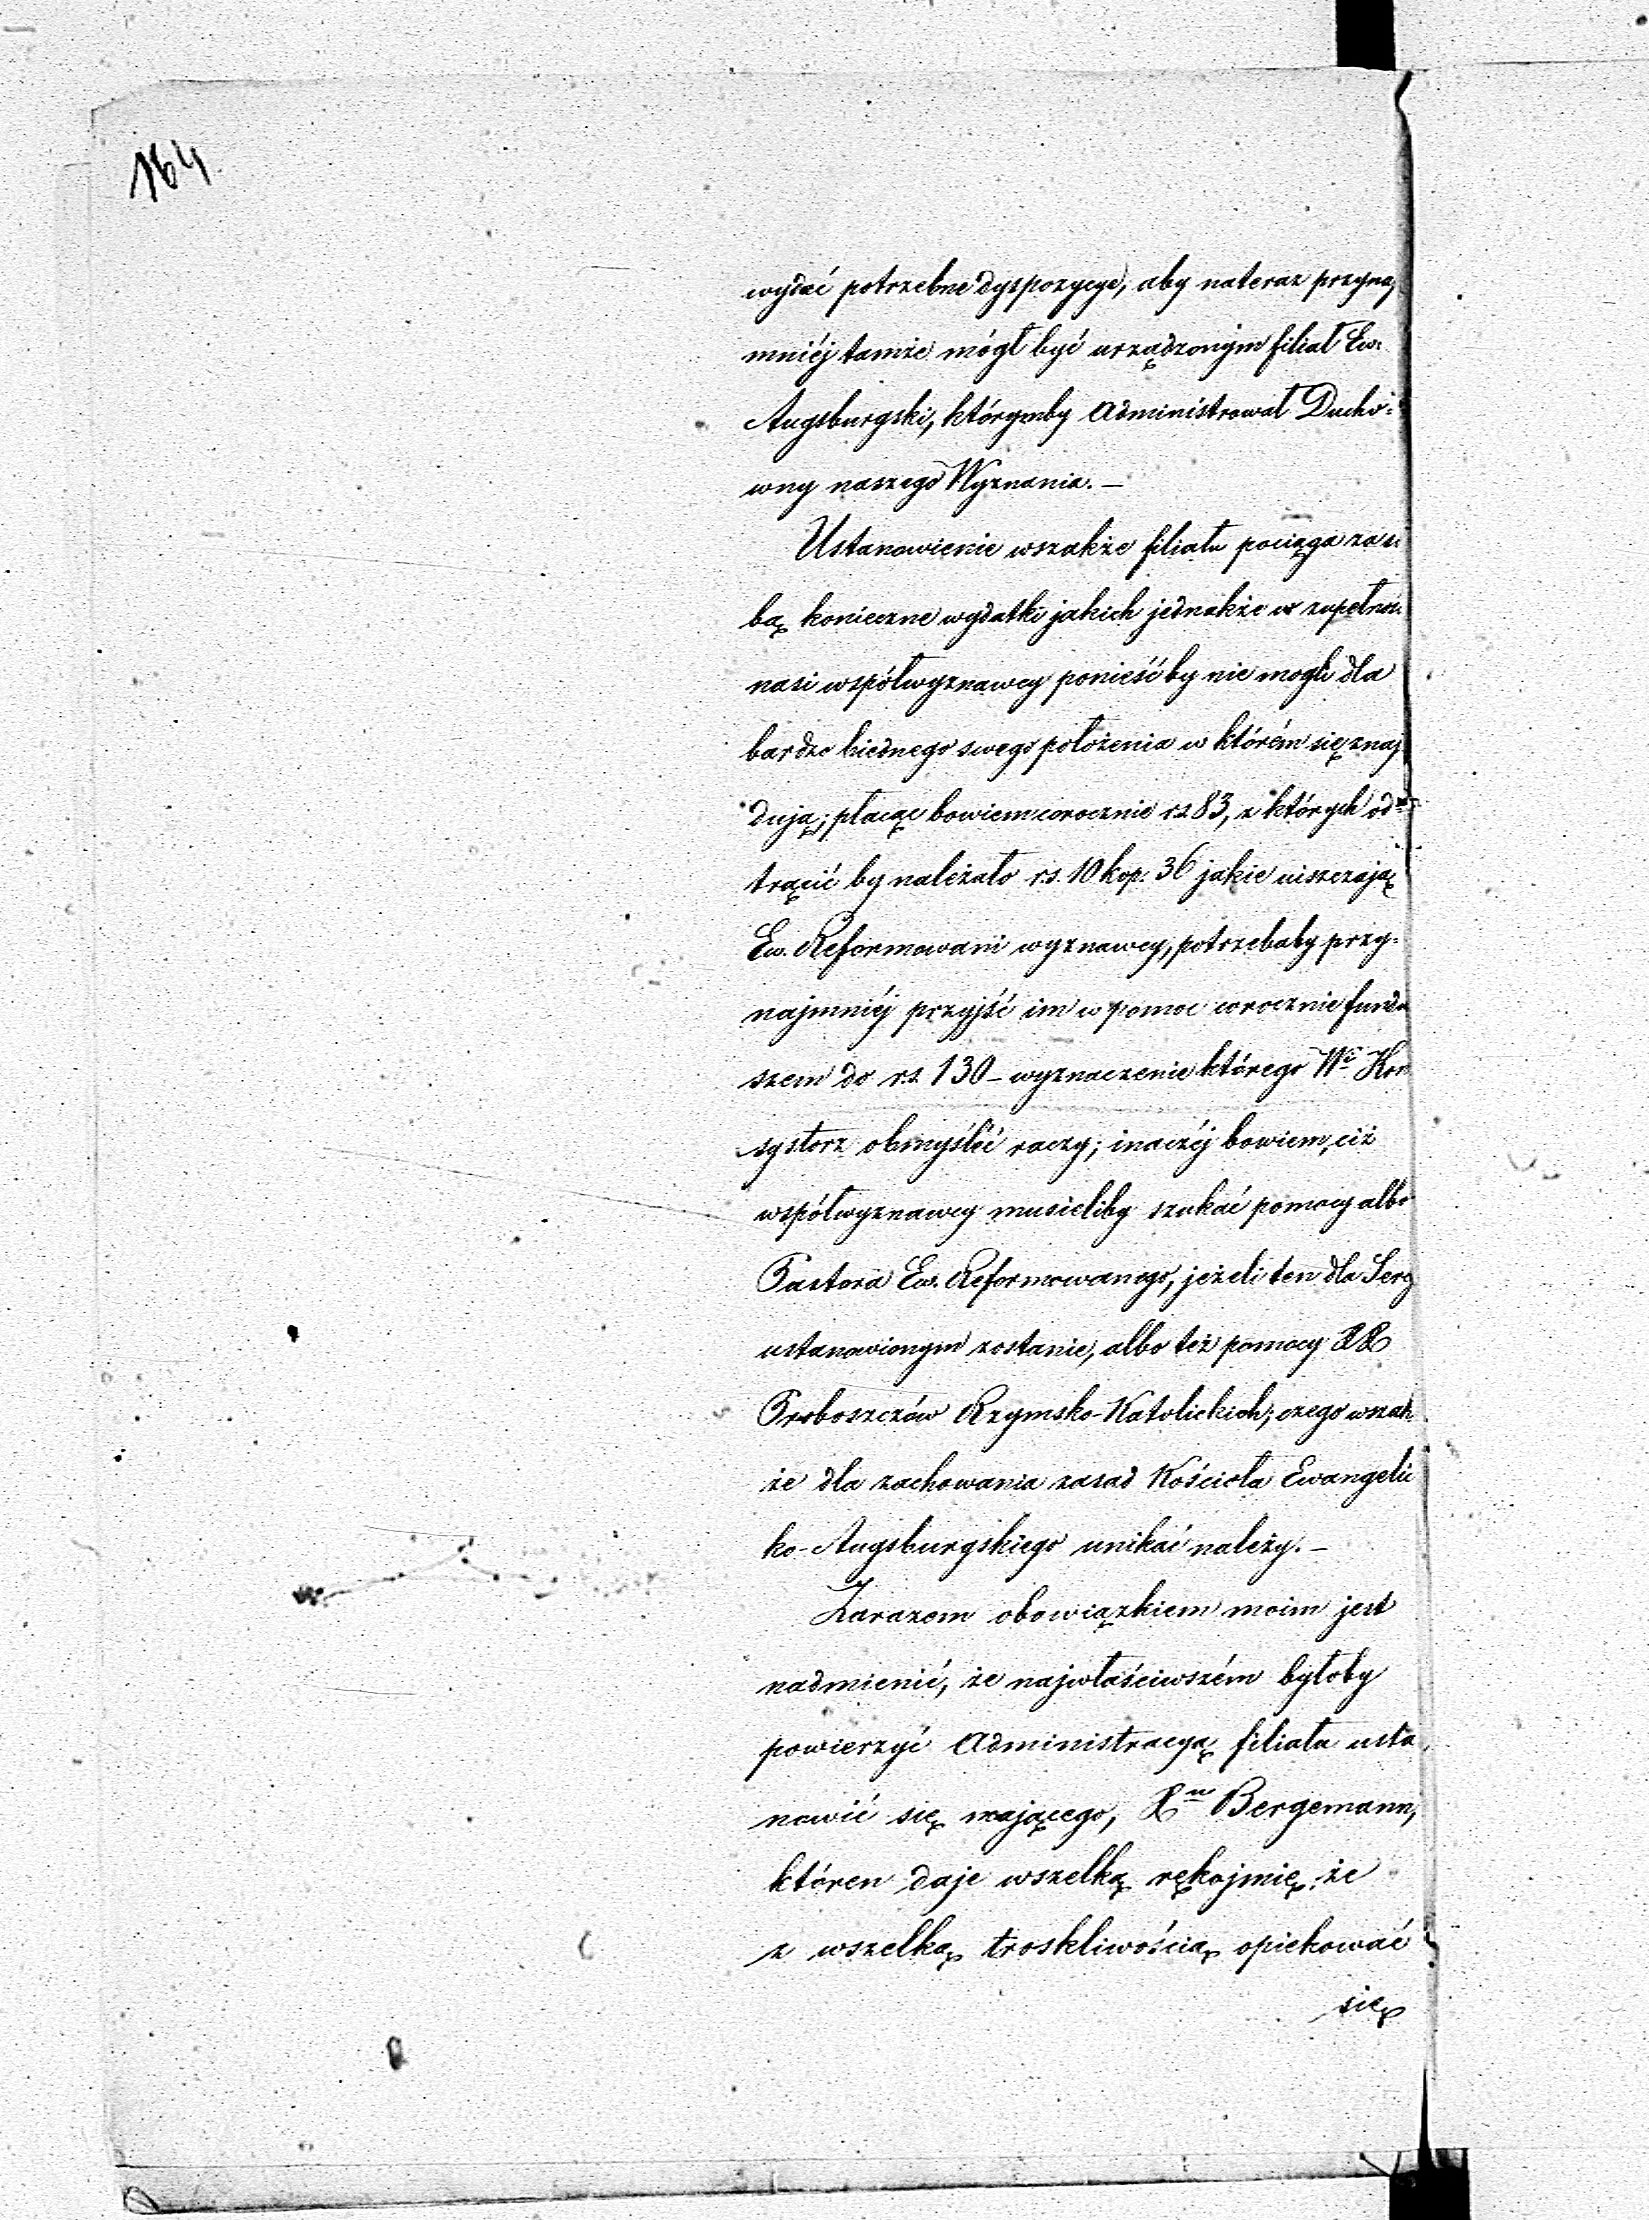 164.
wydać potrzebne dyspozycye, aby nateraz przynaj
mniéj tamże mógł być urządzonym filiał Ew.
Augsburgski, którymby AdministrowałDucho-
wny naszego Wyznania. —
Ustanowienie wszakże filiału pociąga za so
bą konieczne wydatki jakich jednakże w zupełnoś
nasi współwyznawcy ponieść by nie mogli dla
bardzo biednego swego położenia w którém się znaj
dują; płacąc bowiem corocznie rs 83, z których od-
trącić by należało rs. 10 kop. 36 jakie uiszczają
Ew. Reformowani wyznawcy, potrzebaby przy-
najmniéj przyjść im w pomoc corocznie fundu
szem do rs. 130 — wyznaczenie którego Wi Kon
systorz obmyślić raczy; inaczéj bowiem, ciż
współwyznawcy musieliby szukać pomocy albo
Pastora Ew. Reformowanego, jeżeli ten dla Serej
ustanowionym zostanie, albo też pomocy XX
Proboszczów Rzymsko-Katolickich; czego wszak
że dla zachowania zasad Kościoła Ewangelic
ko-Augsburgskiego unikać należy. —
Zarazem obowiązkiem moim jest
nadmienić, że najwłaściwszém byłoby
powierzyć Administracyą filiału usta
nowić się mającego, Xu Bergemann,
któren daje wszelką rękojmię, że
z wszelką troskliwością opiekować
się